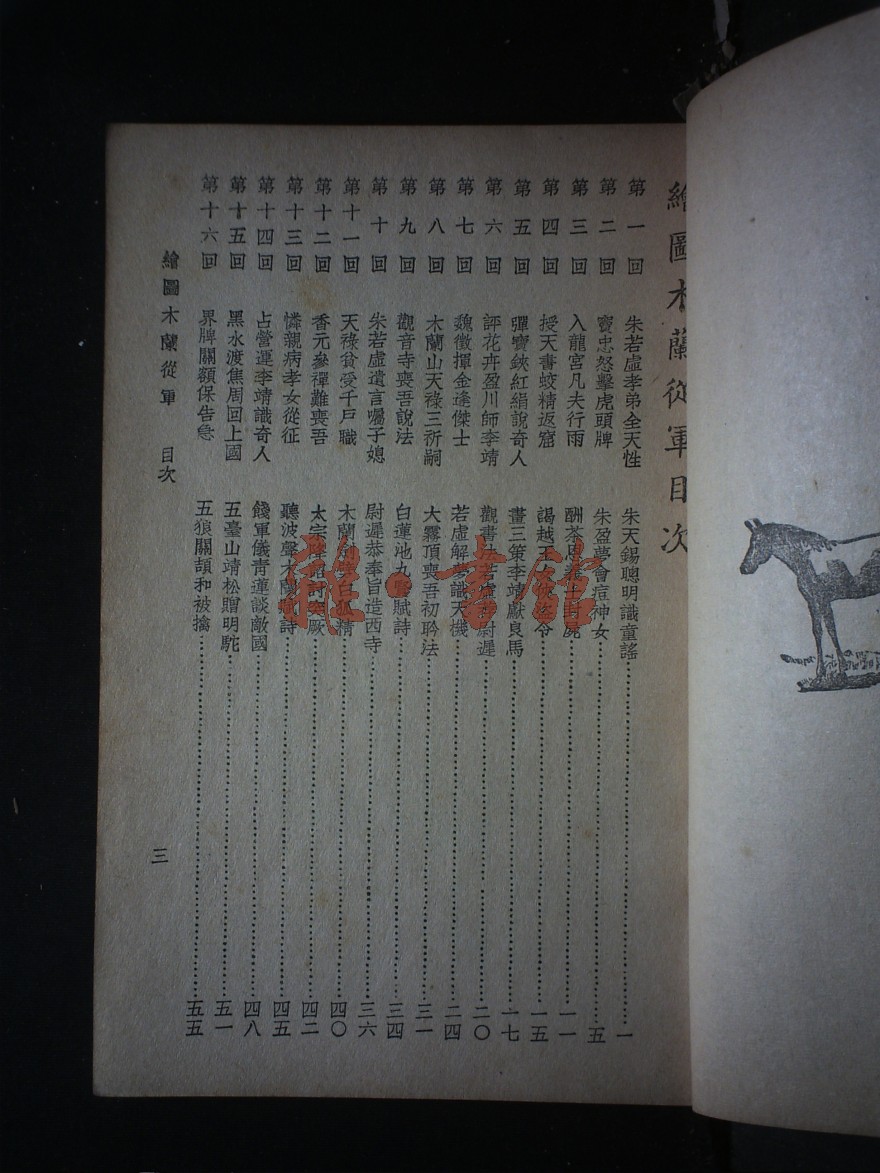 繪圖木蘭從軍目次
第一回 朱若虛孝弟全天性 朱天錫聰明識童謠 一
第二回 竇忠怒擊虎頭牌 朱盈夢會痘神女 五
第三回 入龍宮凡夫行雨 酬茶恩 封屍 一一
第四回 授天書蛟精返窟 謁越王 一五
第五回 彈寶鋏紅絹說奇人 畫三策李靖獻良馬 一七
第六回 評花卉盈川師李靖 觀書 若虛 尉遲 二〇
第七回 魏徵揮金逢傑士 若虛解夢識天機 二四
第八回 木蘭山天祿三祈嗣 大霧頂喪吾初聆法 三一
第九回 觀音寺喪吾說法 白蓮池九 賦詩 三四
第十回 朱若虛遺言囑子媳 尉遲恭奉旨造西寺 三六
第十一回 天祿貧受千戶職 木蘭 白狐精 四〇
第十二回 香元參禪難喪吾 太宗降詔討突厥 四二
第十三回 憐親病孝女從征 聽波聲木蘭賦詩 四五
第十四回 占營運李靖識奇人 餞軍儀青蓮談敵國 四八
第十五回 黑水渡焦周回上國 五臺山靖松贈明駝 五一
第十六回 界牌關額保告急 五狼關頡和被擒 五五
繪圖木蘭從軍 目次
三
雜·書館